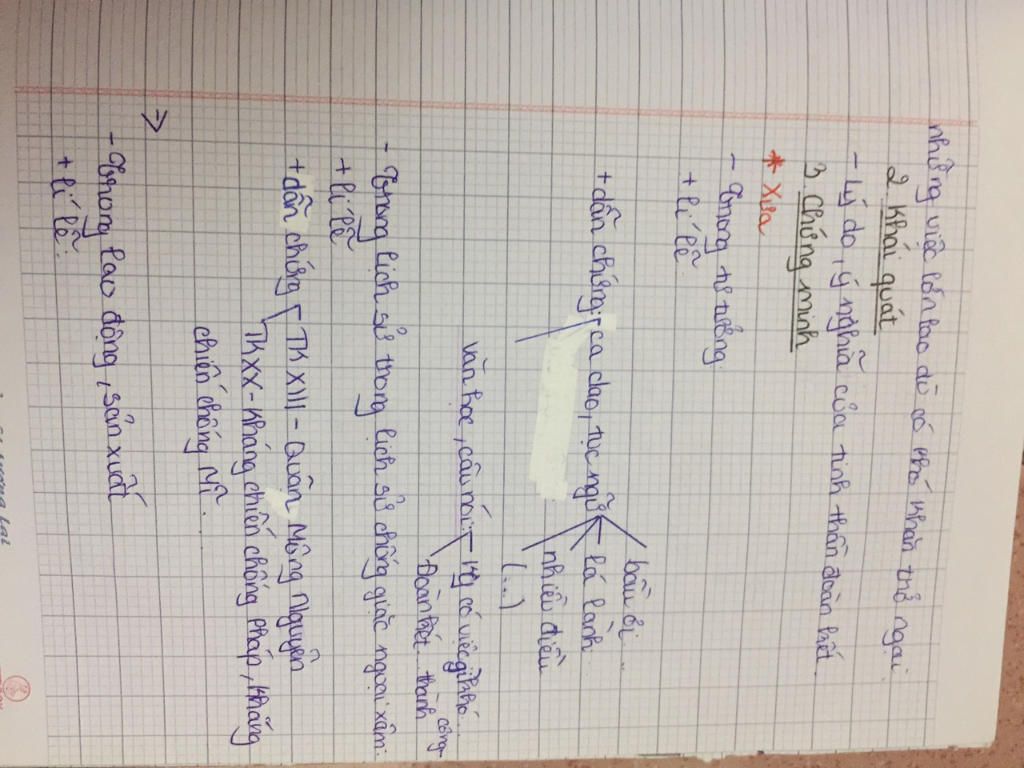 những việc lớn lao dù có khó khăn trở ngại.
2. Khái quát
- Lý do, ý nghĩa của tinh thần đoàn kết.
3. Chứng minh
* Xưa
- Trong tư tưởng.
+ lí lẽ
+ dẫn chứng: ca dao, tục ngữ
bầu ơi...
lá lành
nhiều điều
(...)
văn học, câu nói:
Kg có việc gì khó...
Đoàn kết... thành công
- Trong lịch sử trong lịch sử chống giặc ngoại xâm:
+ lí lẽ
+ dẫn chứng
TK XIII - Quân Mông Nguyên
TK XX - Kháng chiến chống Pháp, kháng
chiến chống Mĩ...
=>
- Trong lao động, sản xuất
+ lí lẽ: